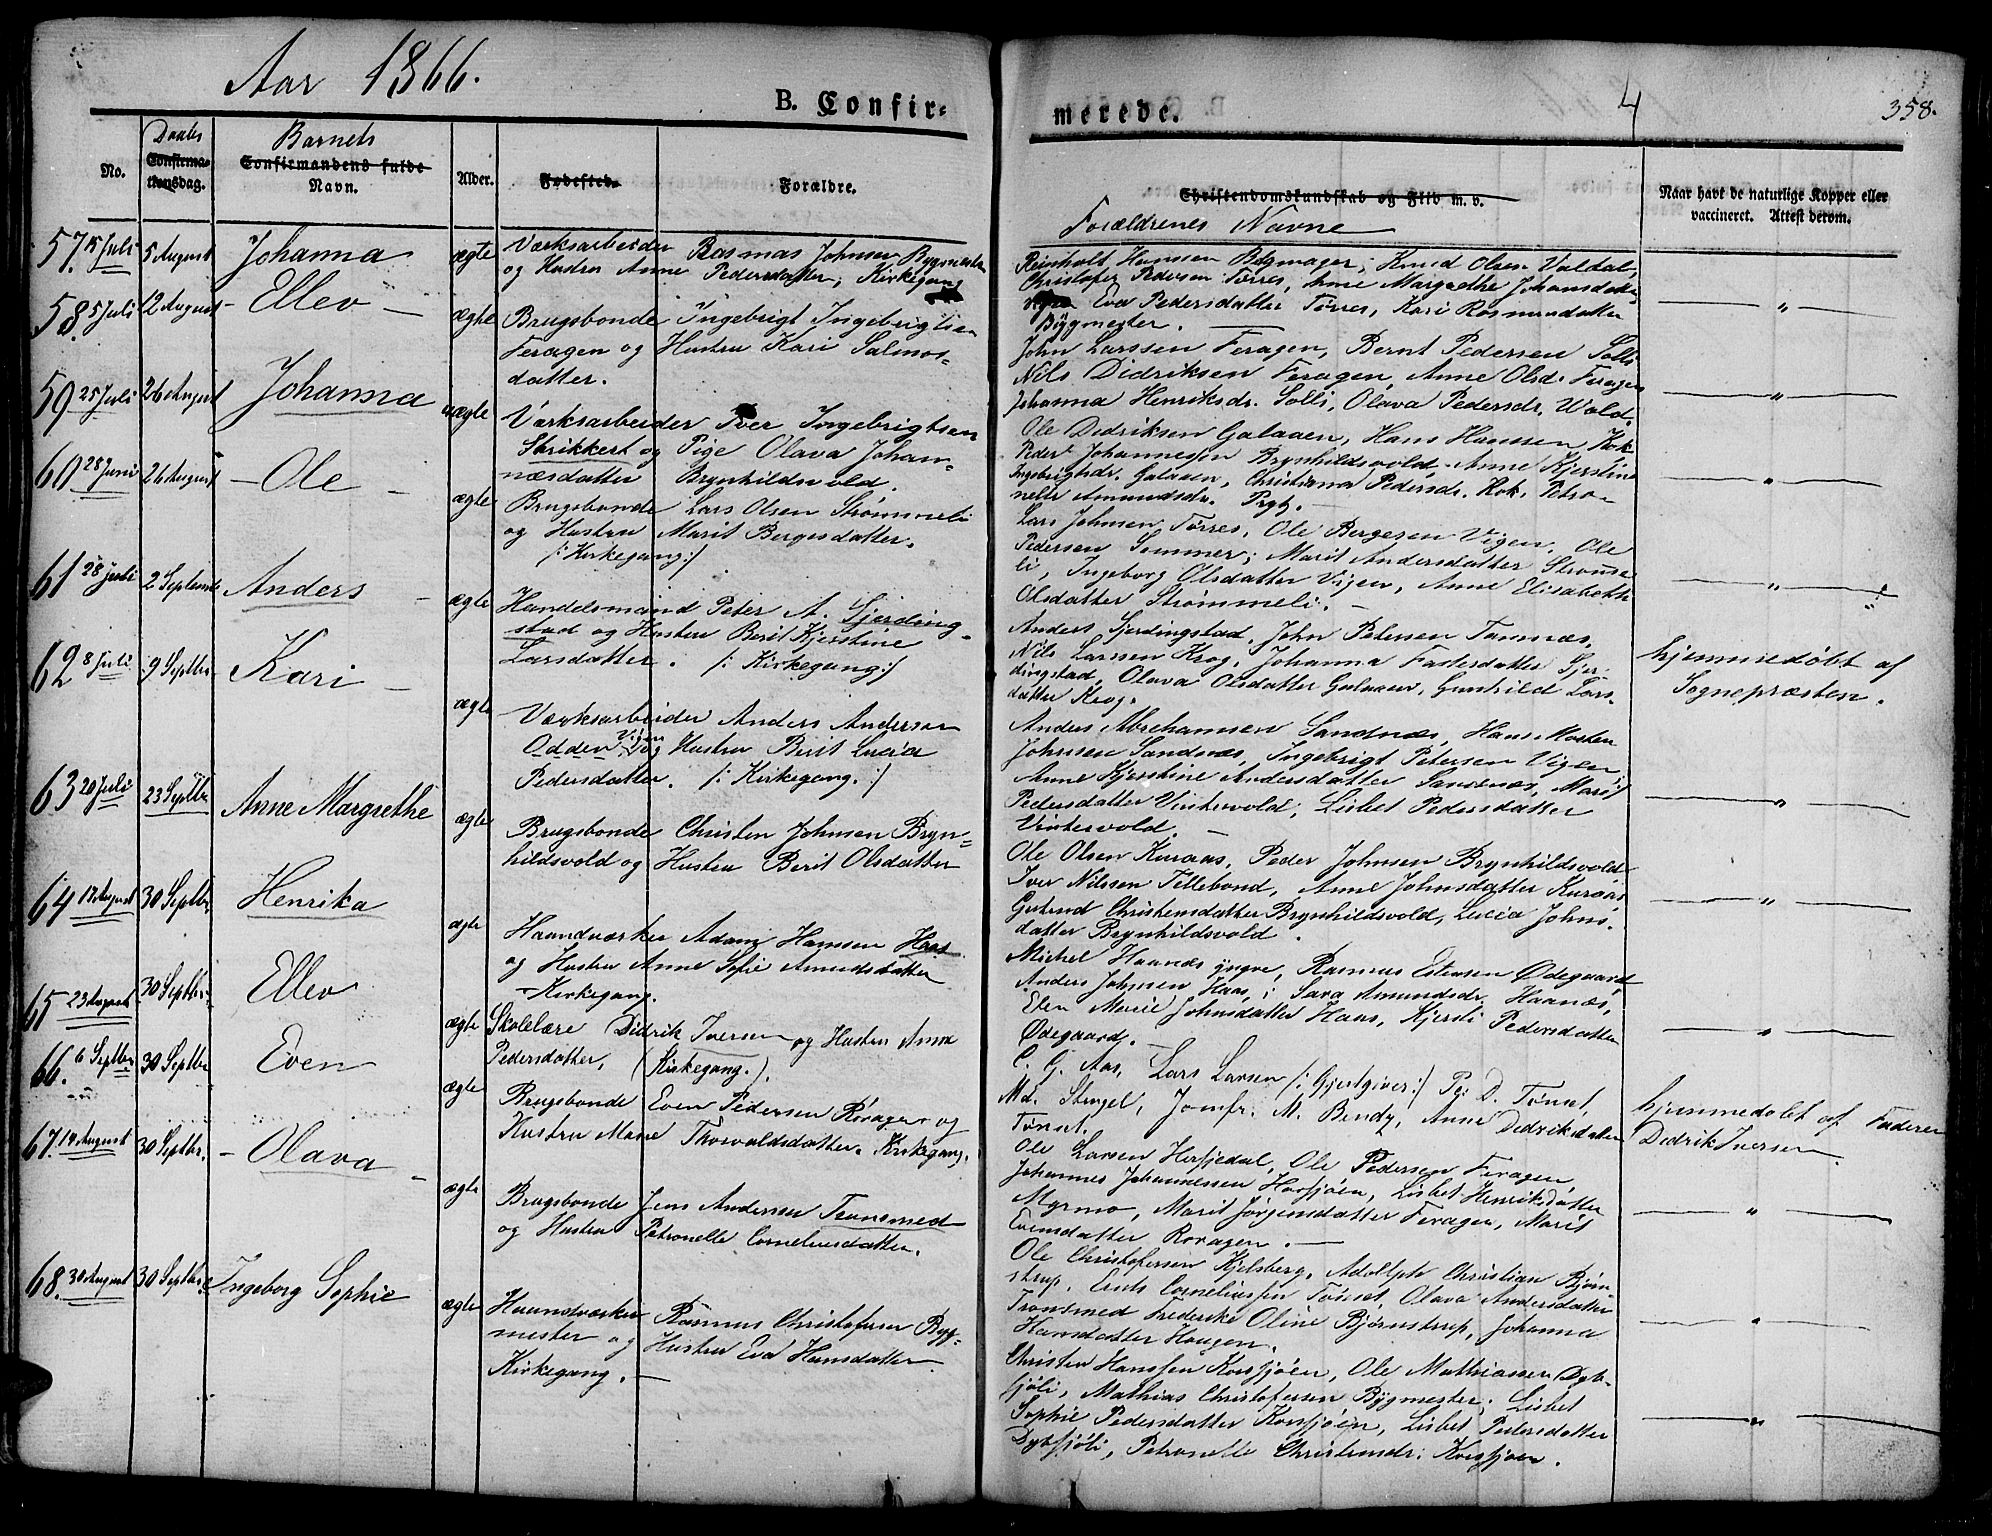 Aar 1866.
B. Confir-
merede.
4
358.
No.
Daabs
Confirma-
tionsdag.
Barnets
Confirmandens fulde
Navn.
Alder.
Fødested.
Forældre.
Christendomskundskab og Flid m. v.
Forældrenes Navne
Naar havt de naturlige Kopper eller
vaccineret. Attest derom.
57. 15 Juli 5 August Johanna ægte
Værksarbeider Rasmus Johnsen Bygmester
og Hustru Anne Pedersdatter, Kirkegang
Reinholt Hanssen Bøgmager; Knud Olsen Valdal,
Christofer Pedersen Tørres, Anne Margrethe Johansdatter
Eva Pedersdatter Tørres, Kari Rasmusdatter
Bygmester. —
— " —
58. 5 Juli 12 August — Ellev — ægte
Brugsbonde Ingebrigt Ingebrigtsen
Feragen og Hustru Kari Salmos-
datter.
John Larssen Feragen, Bernt Pedersen Solli
Nils Didriksen Feragen, Anne Olsd. Feragen
Johanna Henriksdr. Solli, Olava Pedersdr. Wold.
— " —
59 25 Juli 26 August Johanna uægte
Værksarbeider Iver Ingebrigtsen
Strikkert og Pige Olava Johan-
næsdatter Brynhildsvold.
Ole Didriksen Galaaen, Hans Hanssen Kok
Peder Johannesen Brynhildsvold, Anne Kjerstine
Ingebrigtsdr. Galaaen, Christiana Pedersdr. Kok, Petro-
nelle Amundsdr. Prgtz. —
— " —
60 28 Juni 26 August — Ole — ægte
Brugsbonde Lars Olsen Strømmeli
og Hustru Marit Bergesdatter.
/: Kirkegang:/
Lars Johnsen Tørres, Ole Bergesen Vigen, Ole
Pedersen Sommer; Marit Andersdatter Strømme-
li, Ingeborg Olsdatter Vigen, Anne Elisabeth
Olsdatter Strømmeli. —
— " —
61 28 Juli 2 September Anders — ægte
Handelsmand Peter A. Sjerding-
stad og Hustru Berit Kjerstine
Larsdatter. /: Kirkegang:/
Anders Sjerdingstad, John Petersen Tamnæs,
Nils Larssen Krog, Johanna Fastesdatter Sjer-
dingstad, Olava Olsdatter Galaaen, Gunhild Lars-
datter Krog.
hjemmedøbt af
Sognepræsten.
62 8 Juli 9 Septbr. Kari — ægte
Værksarbeider Anders Andersen
Odden Vigen og Hustru Berit Lucia
Pedersdatter. /: Kirkegang. :/
Anders Abrahamsen Sandnæs, Hans Morten
Johnsen Sandnæs, Ingebrigt Petersen Vigen
Anne Kjerstine Andersdatter Sandnæs, Marit
Pedersdatter Vintervold, Lisbet Pedersdatter
Vintervold. —
— " —
63 20 Juli 23 Septbr Anne Margrethe ægte
Brugsbonde Christen Johnsen Bryn-
hildsvold og Hustru Berit Olsdatter
Ole Olsen Kuraas, Peder Johnsen Brynhildsvold
Iver Nilssen Tellebond, Anne Johnsdatter Kuraas
Gjertrud Christensdatter Brynhildsvold, Lucia Johns-
datter Brynhildsvold.
— " —
64 17 August 30 Septbr Henrika ægte
Haandværker Adam Hanssen Haas
og Hustru Anne Sofie Amundsdatter
— Kirkegang.
Michel Haanæs yngre, Rasmus Estensen Ødegaard
Anders Johnsen Haas, Sara Amundsdr. Haanæs,
Elen Marie Johnsdatter Haas, Kjersti Pedersdatter
Ødegaard. —
— " —
65 23 August 30 Septbr. Ellev ægte
Skolelære Didrik Iversen og Hustru Anne
Pedersdatter, (Kirkegang.).
C. G. Aas, Lars Larsen /: Gjestgiver:/ P. D. Tønset,
Md. Stengel, Jomfr. M. Bendz, Anne Didriksdatter
Tønset.
hjemmedøbt af Faderen
Didrik Iversen.
66. 6 Septbr. 30 Septbr Even ægte
Brugsbonde Even Pedersen Røragen og
Hustru Marie Thorvaldsdatter. Kirkegang.
Ole Larsen Herjedal, Ole Pedersen Feragen,
Johannes Johannessen Havsjøen, Lisbet Henriksdatter
Myrmo, Marit Jørgensdatter Feragen, Marit
Evensdatter Roragen. —
— " —
67. 14 August 30 Septbr. — Olava — ægte
Brugsbonde Jens Andersen Tronsmed
og Hustru Petronelle Corneliusdatter.
Ole Christofersen Kjelsberg, Adolph Christian Bjørn-
strup, Ernts Corneliussen Tønset, Olava Andersdatter
Tronsmed Frederike Oline Bjørnstrup, Johanna
Hansdatter Haugen.
— " —
68. 30 August 30 Septbr. Ingeborg Sophie ægte
Haandværker Rasmus Christofersen Byg-
mester og Hustru Eva Hansdatter
Kirkegang. —
Christen Hanssen Korssjøen, Ole Mathiassen Dyb-
sjøli, Mathias Christofersen Bygmester, Lisbet
Sophie Pedersdatter Korssjøen, Lisbet Pedersdatter
Dybsjøli, Petronelle Christensdr. Korssjøen.
— " —